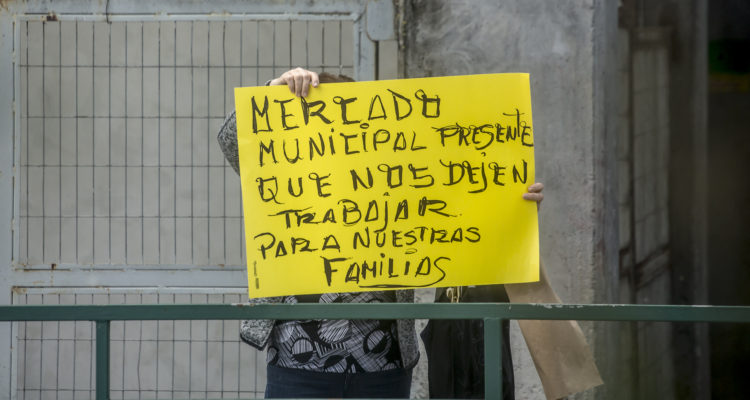 MERCADO
MUNICIPAL PRESENTE
QUE NOS DEJEN
TRABAJAR
PARA NUESTRAS
FAMILIAS